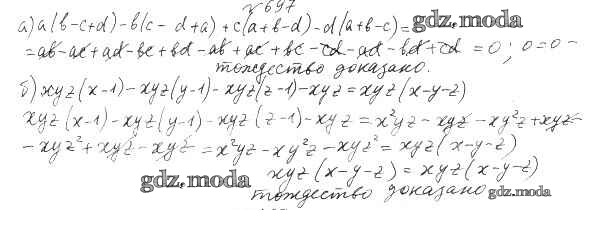 № 697
а) a(b-c+d)-b(c-d+a)+c(a+b-d)-d(a+b-c)= gdz.moda
=ab-ac+ad-bc+bd-ab+ac+bc-cd-ad-bd+cd=0; 0=0 -
тождество доказано.
б) xyz(x-1)-xyz(y-1)-xyz(z-1)-xyz=xyz(x-y-z)
xyz(x-1)-xyz(y-1)-xyz(z-1)-xyz=x²yz-xyz-xy²z+xyz-
-xyz²+xyz-xyz=x²yz-xy²z-xyz²=xyz(x-y-z)
xyz(x-y-z)=xyz(x-y-z)
gdz.moda
тождество доказано gdz.moda